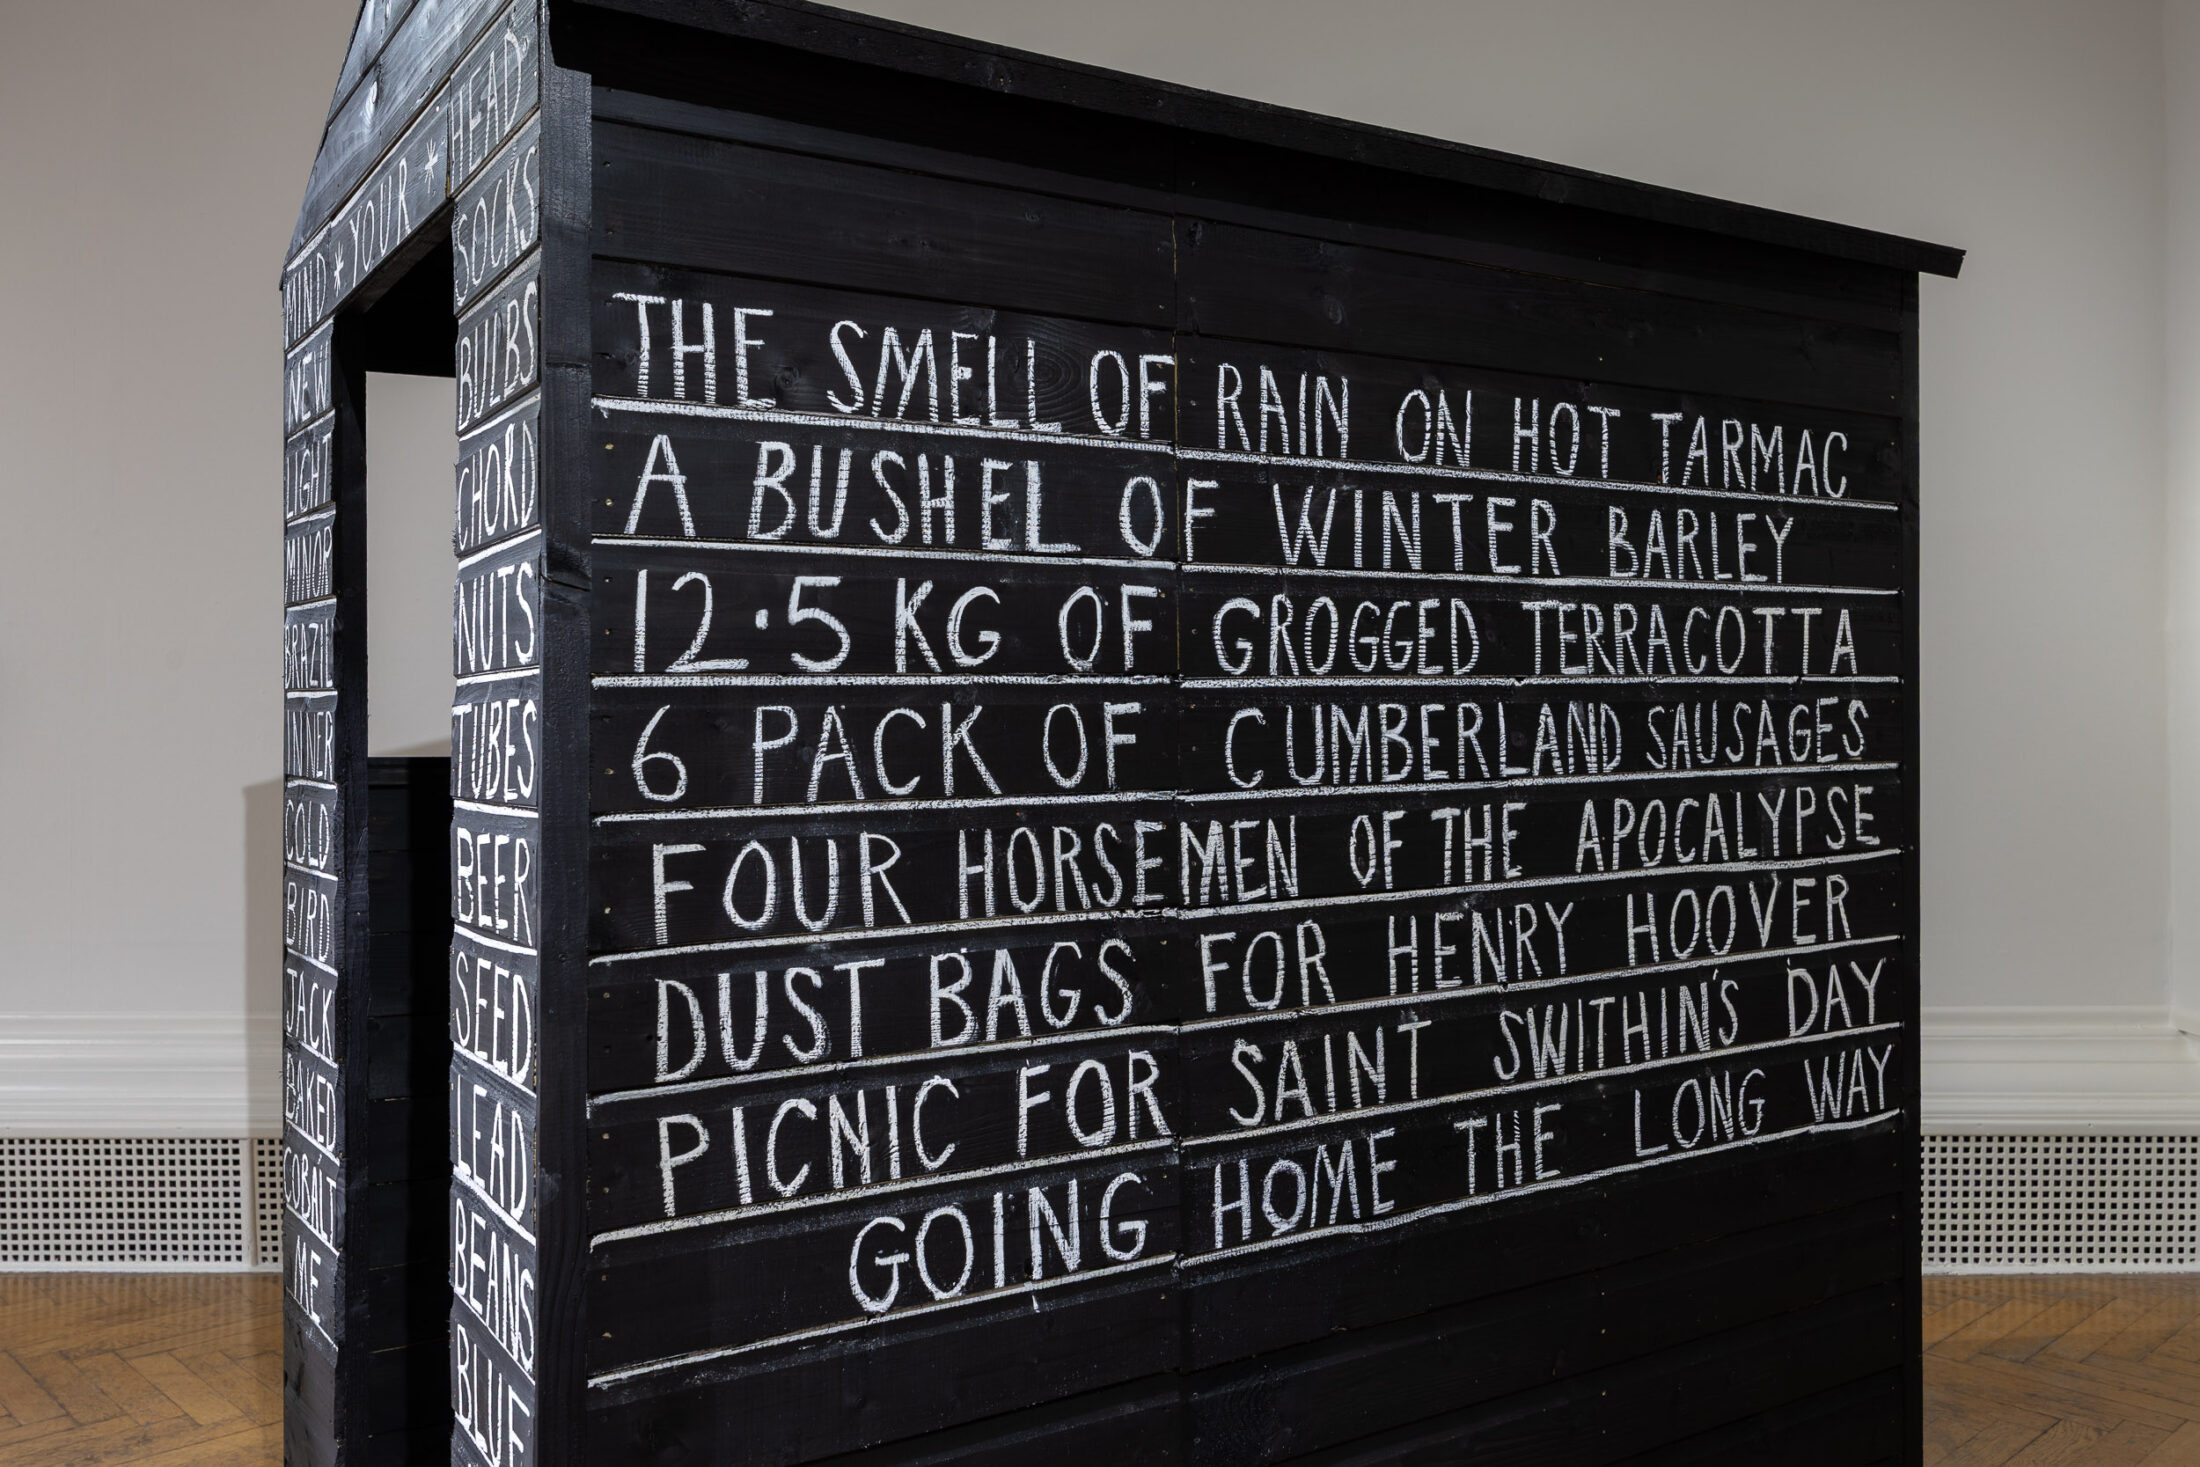 MIND * YOUR * HEAD
NEW SOCKS
LIGHT BULBS
MINOR CHORD
BRAZIL NUTS
INNER TUBES
COLD BEER
BIRD SEED
JACK LEAD
BAKED BEANS
COBALT BLUE
ME
THE SMELL OF RAIN ON HOT TARMAC
A BUSHEL OF WINTER BARLEY
12·5 KG OF GROGGED TERRACOTTA
6 PACK OF CUMBERLAND SAUSAGES
FOUR HORSEMEN OF THE APOCALYPSE
DUST BAGS FOR HENRY HOOVER
PICNIC FOR SAINT SWITHIN'S DAY
GOING HOME THE LONG WAY